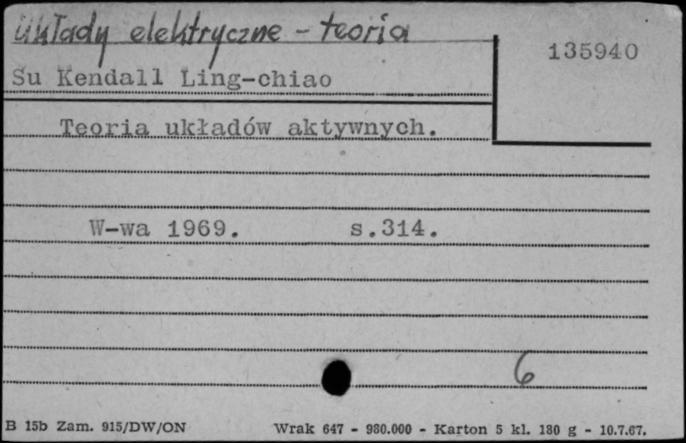 Układy elektryczne - teoria
135940
Su Kendall Ling-chiao
Teoria układów aktywnych.
W-wa 1969. s.314.
6
B 15b Zam. 915/DW/ON Wrak 647 - 980.000 - Karton 5 kl. 180 g - 10.7.67.